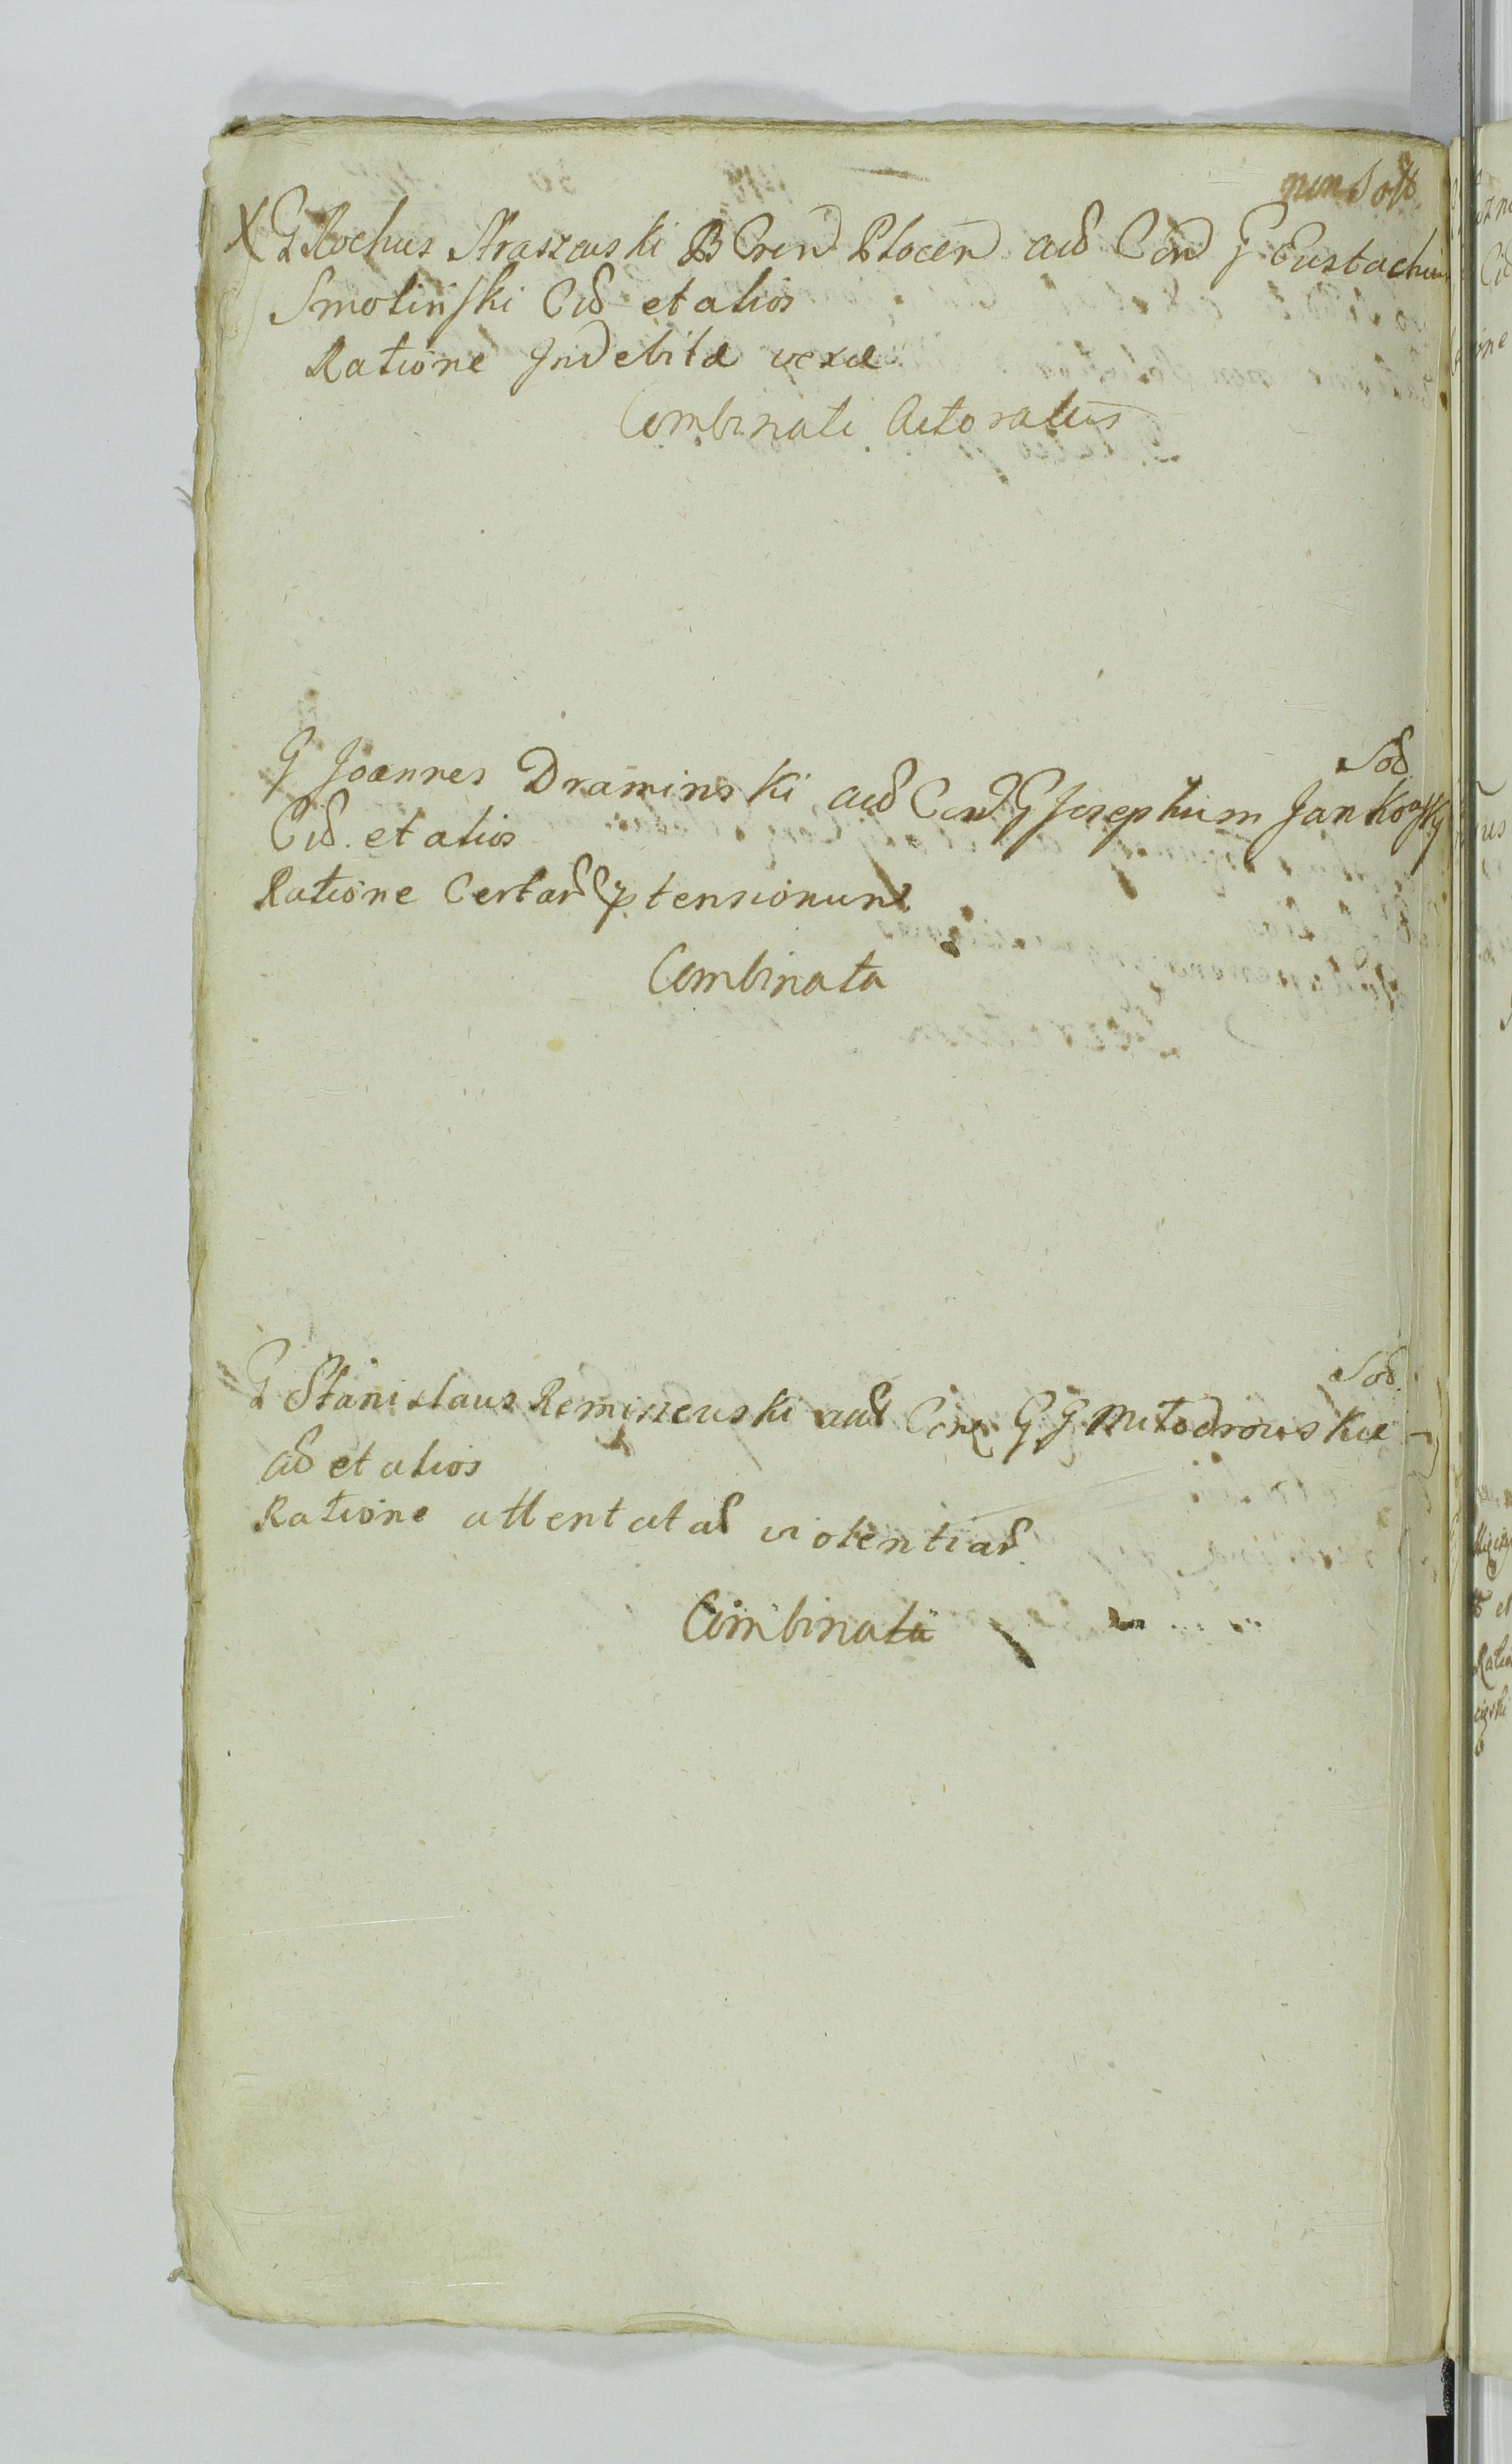 non Solt
X G Rochus Straszewski B Cren Plocen aĉ Con G Eustachium
Smolinski Cit et alios
Ratione Indebitæ vexæ
Combinati Actoratus
Sol
G Joannes Draminski act Con G Josephum Jankowsky
Cit. et alios
Ratione Certar ptensionum
Combinata
Sol
G Stanislaus Remiszewski act Con GG Mitodrowskie
Cit et alios
Ratione attentatar violentiar
Combinata